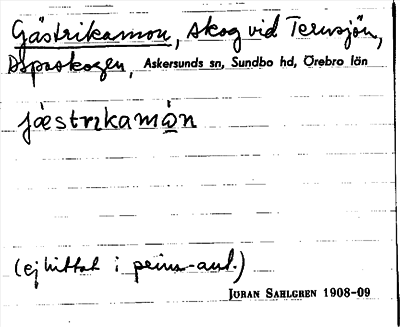 Gästrikamon, skog vid Ternsjön,
Aspaskogen, Askersunds sn, Sundbo hd, Örebro län
jæ̀strıkamò̤n
(ej hittat i prim-ant.)
JÖRAN SAHLGREN 1908-09